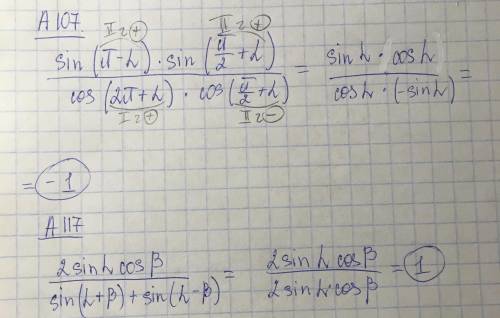 A 107.
II г + II г +
sin (π-α) · sin (π/2 + α) / cos (2π+α) · cos (π/2 + α) = sin α · cos α / cos α · (-sin α) =
I г + II г -
= -1
A 117
2 sin α cos β / sin(α+β) + sin(α-β) = 2 sin α cos β / 2 sin α · cos β = 1